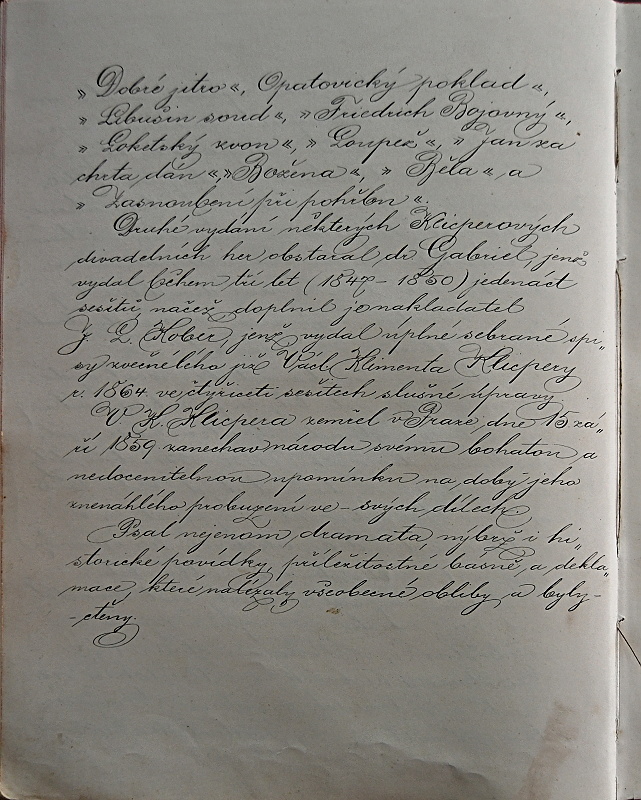 » Dobré jitro «, Opatovický poklad «,
» Libušin soud «, » Friedrich Bojovný «,
» Loketský zvon «, » Loupež «, » Jan za
chrta dán «, » Božena «, » Běla «, a
» Zasnoubení při pohřbu «.
Druhé vydání některých Klicperových
divadelních her obstaral dr. Gabriel, jenž
vydal během tří let (1847 - 1850) jedenáct
sešitů, načež doplnil jo nakladatel
J. L. Kober, jenž vydal úplné sebrané spi„
sy zvěčnělého již Václ. Klimenta Klicpery
r. 1864. ve čtyřiceti sešitech slušné úpravy.
V. K. Klicpera zemřel v Praze dne 15. zá„
ří 1859. zanechav národu svému bohatou a
nedocenitelnou upomínku na doby jeho
znenáhlého probuzení ve - svých dílech.
Psal nejenom dramata, nýbrž i hi„
storické povídky, příležitostné básně, a dekla„
mace, které nalézaly všeobecné obliby a byly -
- čteny.